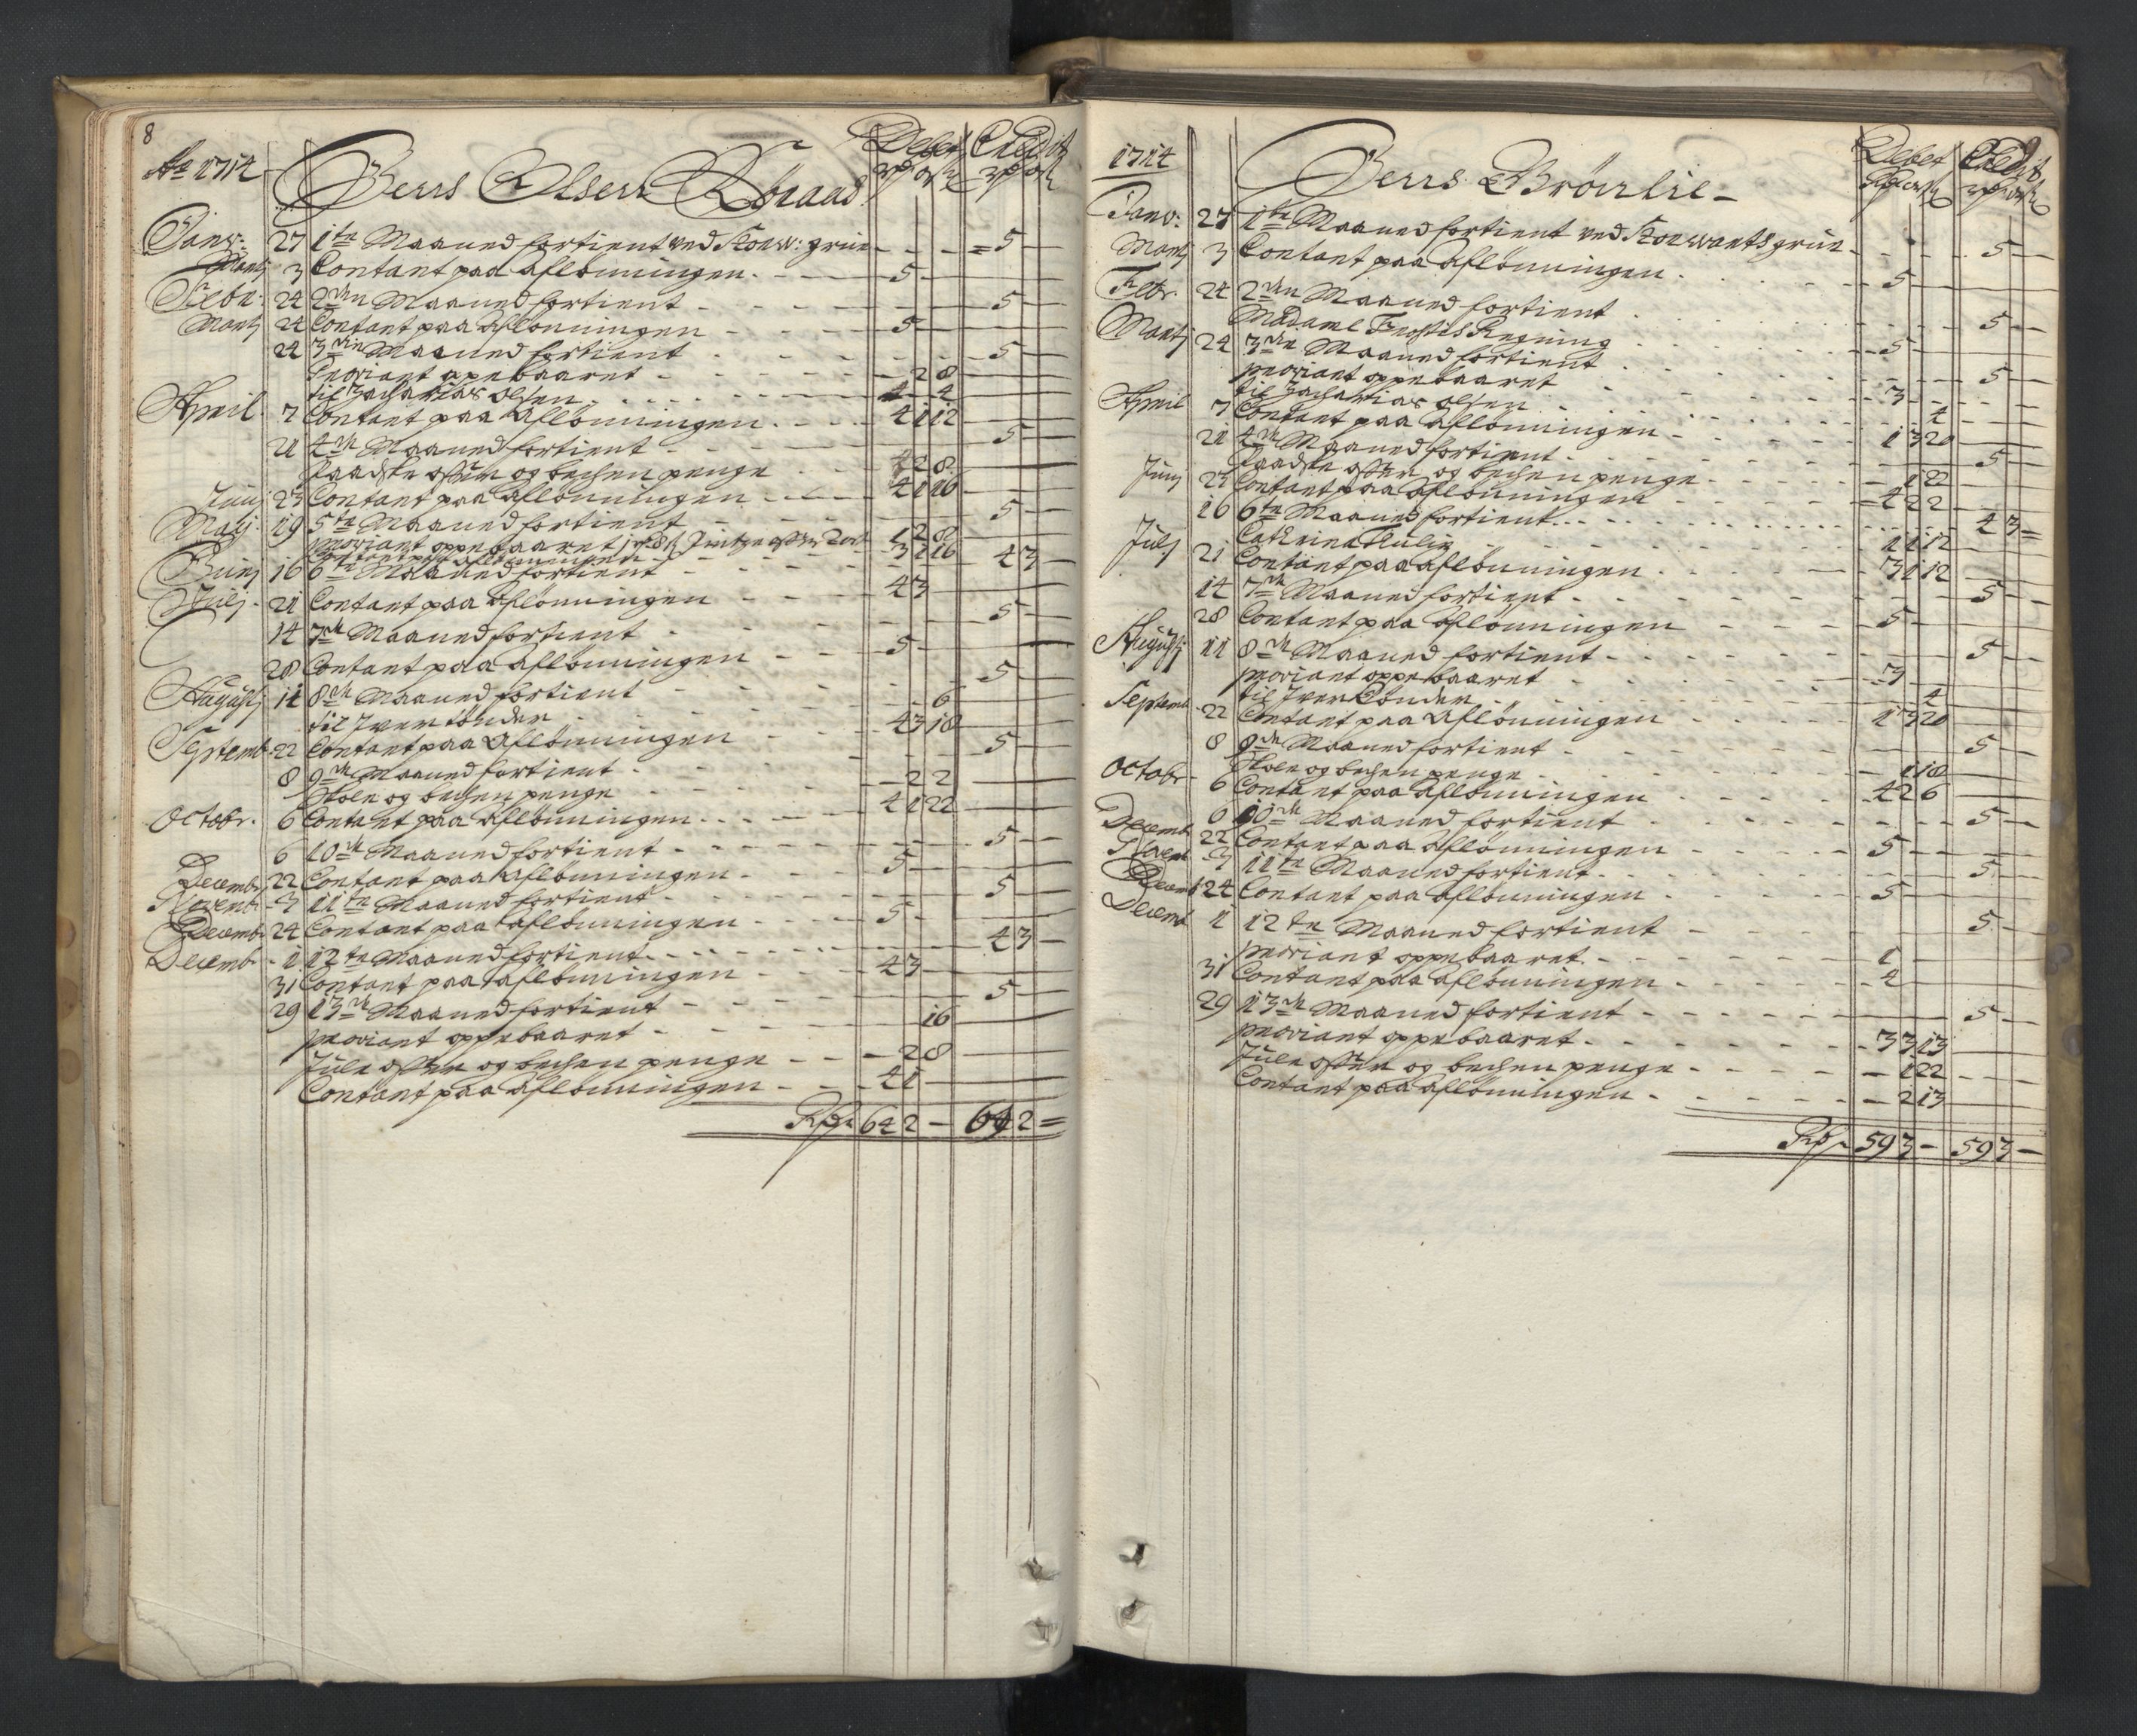 8
Ao 1714 Debet Credit
Berrs Olserr
Janv: 27 1te Maaned fortient ved Storw: grue - 5 -
Martj 3 Contant paa aflønningen 5 -
Febr: 24 2den Maaned fortient 5 -
Martj 24 Contant paa aflønningen 5 -
24 3die Maaned fortient 5 -
Proviant opebaaret - 2 8
til Zacharias Olsen 4
April 7 Contant paa aflønningen 4 1 12
21 4de Maaned fortient 5 -
Paadske offer og bechen penge 2 8
Junj 23 Contant paa aflønningen 4 1 16
Maij 19 5te Maaned fortient 5 -
proviant oppebaaret 1 2 8
Contant paa aflønningen 3 1 16
Junj 16 6te Maaned fortient 4 3
Julj 21 Contant paa aflønningen 4 3
14 7de Maaned fortient 5 -
28 Contant paa aflønningen 5 -
Augustj 11 8de Maaned fortient 5 -
til Iver tönder 6
Septemb: 22 Contant paa aflønningen 4 3 18
8 9de Maaned fortient 5 -
Skole og bechen penge - 2 2
Octobr. 6 Contant paa aflønningen 4 1 22
6 10de Maaned fortient 5 -
Decemb: 22 Contant paa aflønningen 5 -
Novemb: 3 11te Maaned fortient 5 -
Decemb: 24 Contant paa aflønningen 5 -
Decemb: 1 12te Maaned fortient 4 3 -
31 Contant paa aflønningen 4 3
29 13de Maaned fortient 5 -
proviant oppebaaret 16
Jule offer og bechen penge - 2 8
Contant paa aflønningen 4 1
Rdr 64 2 - 64 2 =
1714 Debet Credit
Berrs Brörrlie -
Janv: 27 1te Maaned fortient ved Storwartsgrue 5 -
Martj 3 Contant paa aflønningen 5 -
Febr. 24 2den Maaned fortient 5 -
Madame Regning 5 -
Martj 24 3die Maaned fortient 5 -
proviant oppebaaret 3
til Zacharias Olsen 4
April 7 Contant paa aflønningen 1 3 20
21 4de Maaned fortient 5 -
Paadske offer og bechen penge 1 22
Junj 23 Contant paa aflønningen 4 2 2
16 6te Maaned fortient 4 3 =
Cathrina 1 1 12
Julj 21 Contant paa aflønningen 3 1 12
14 7de Maaned fortient 5 -
28 Contant paa aflønningen 5 -
Augustj 11 8de Maaned fortient 5 -
proviant oppebaaret 3
til Iver Tönder 4
Septemb 22 Contant paa aflønningen 1 3 20
8 9de Maaned fortient 5 -
Skole og bechen penge 1 18
Octobr 6 Contant paa aflønningen 4 2 6
6 10de Maaned fortient 5 -
Decemb 22 Contant paa aflønningen 5 -
Novemb 3 11te Maaned fortient 5 -
Decemb 24 Contant paa aflønningen 5 -
Decemb 1 12te Maaned fortient 5 -
proviant oppebaaret 1
31 Contant paa aflønningen 4
29 13de Maaned fortient 5 -
proviant oppebaaret 3 3 13
Jule offer og bechen penge 1 22
Contant paa aflønningen - 2 13
Rdr 59 3 - 59 3 -